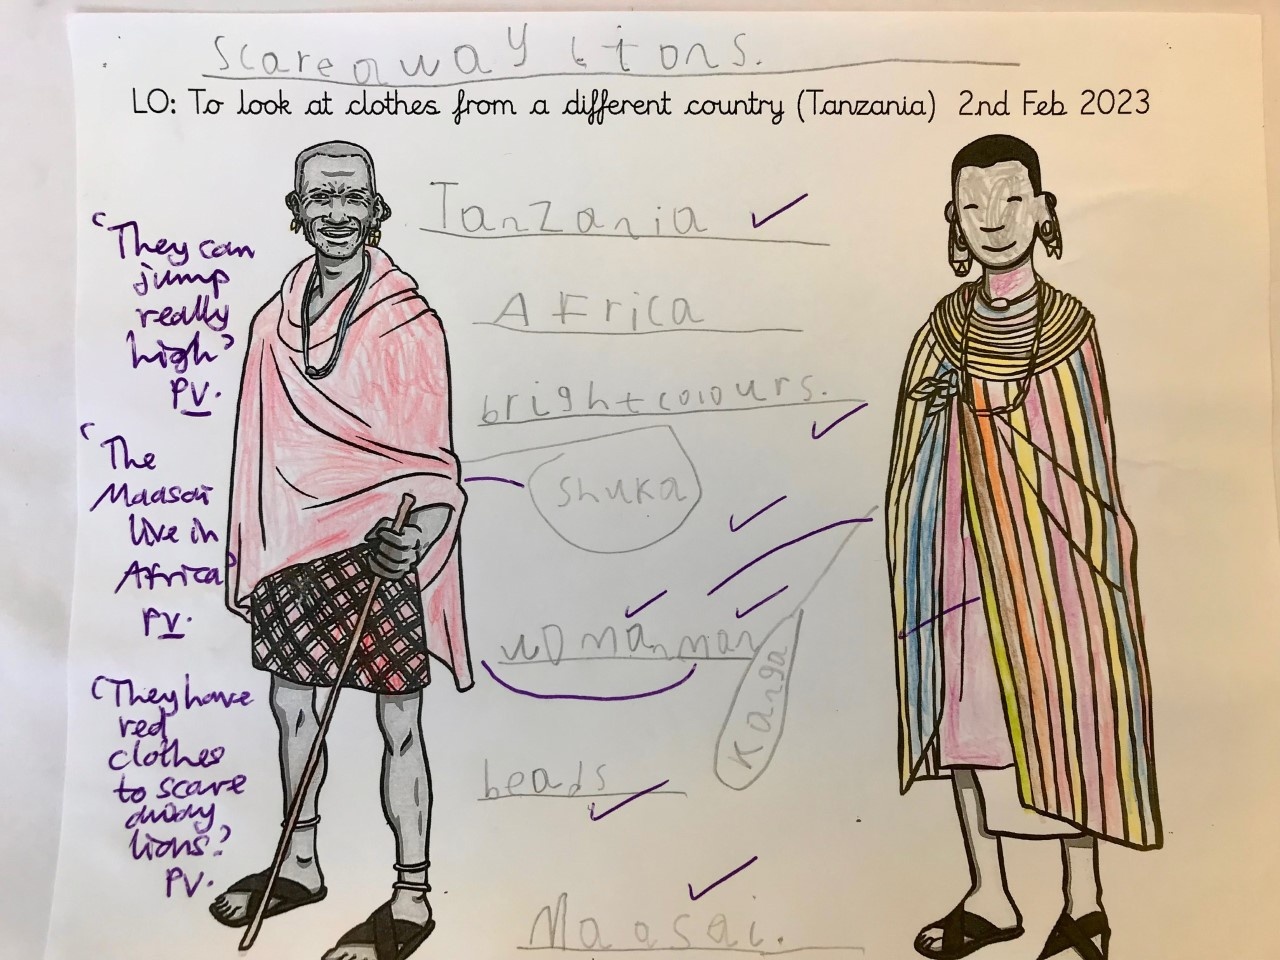 scare away lions.
LO: To look at clothes from a different country (Tanzania) 2nd Feb 2023
'They can
jump
really
high'
PV.
'The
Maasai
live in
Africa'
PV.
'They have
red
clothes
to scare
away
lions.'
PV.
Tanzania
AFrica
bright colours.
Shuka
woman man
Kanga
beads
Maasai.